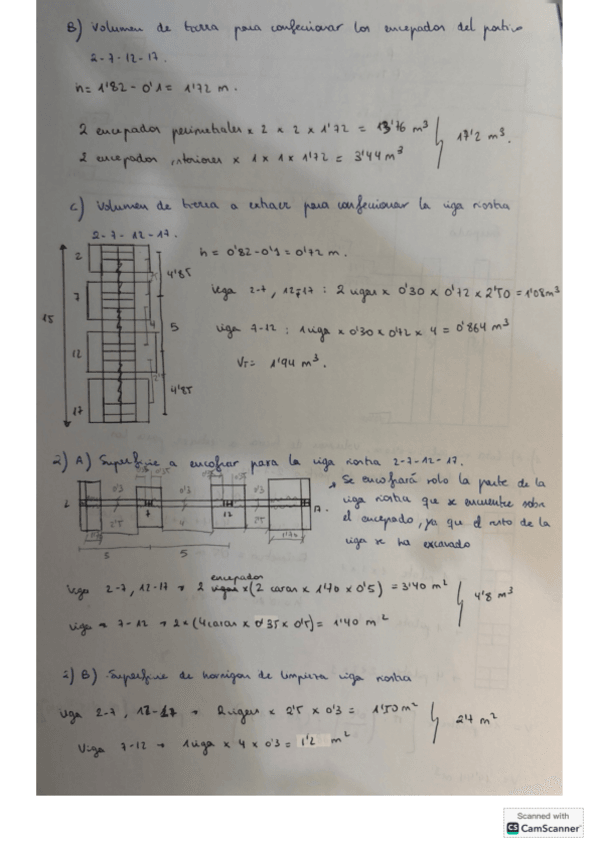 B) Volumen de tierra para confeccionar los encepados del pórtico
2-7-12-17.
h= 1'82 - 0'1 = 1'72 m.
2 encepados perimetrales x 2 x 2 x 1'72 = 13'76 m³
17'2 m³.
2 encepados interiores x 1 x 1 x 1'72 = 3'44 m³
c) Volumen de tierra a extraer para confeccionar la viga riostra
2-7-12-17.
h = 0'82-0'1 = 0'72 m.
Viga 2-7, 12-17 : 2 vigas x 0'30 x 0'72 x 2'50 = 1'08 m³
Viga 7-12 : 1 viga x 0'30 x 0'72 x 4 = 0'864 m³
VT= 1'94 m³.
2
4'85
7
15
4
5
12
4'85
17
2) A) Superficie a encofrar para la viga riostra 2-7-12-17.
Se encofrará solo la parte de la
viga riostra que se encuentre sobre
el encepado, ya que el resto de la
viga se ha excavado
0'3
0'3
0'3
2
7
12
17.
2'5
4
2'5
5
5
encepados
Viga 2-7, 12-17 → 2 vigas x (2 caras x 1'70 x 0'5) = 3'40 m²
4'8 m³
Viga → 7-12 → 2x (4 caras x 0'35 x 0'5) = 1'40 m²
2) B) Superficie de hormigón de limpieza viga riostra
Viga 2-7, 12-17 → 2 vigas x 2'5 x 0'3 = 1'50 m²
2'7 m²
Viga 7-12 → 1 viga x 4 x 0'3 = 1'2 m²
Scanned with
CS CamScanner